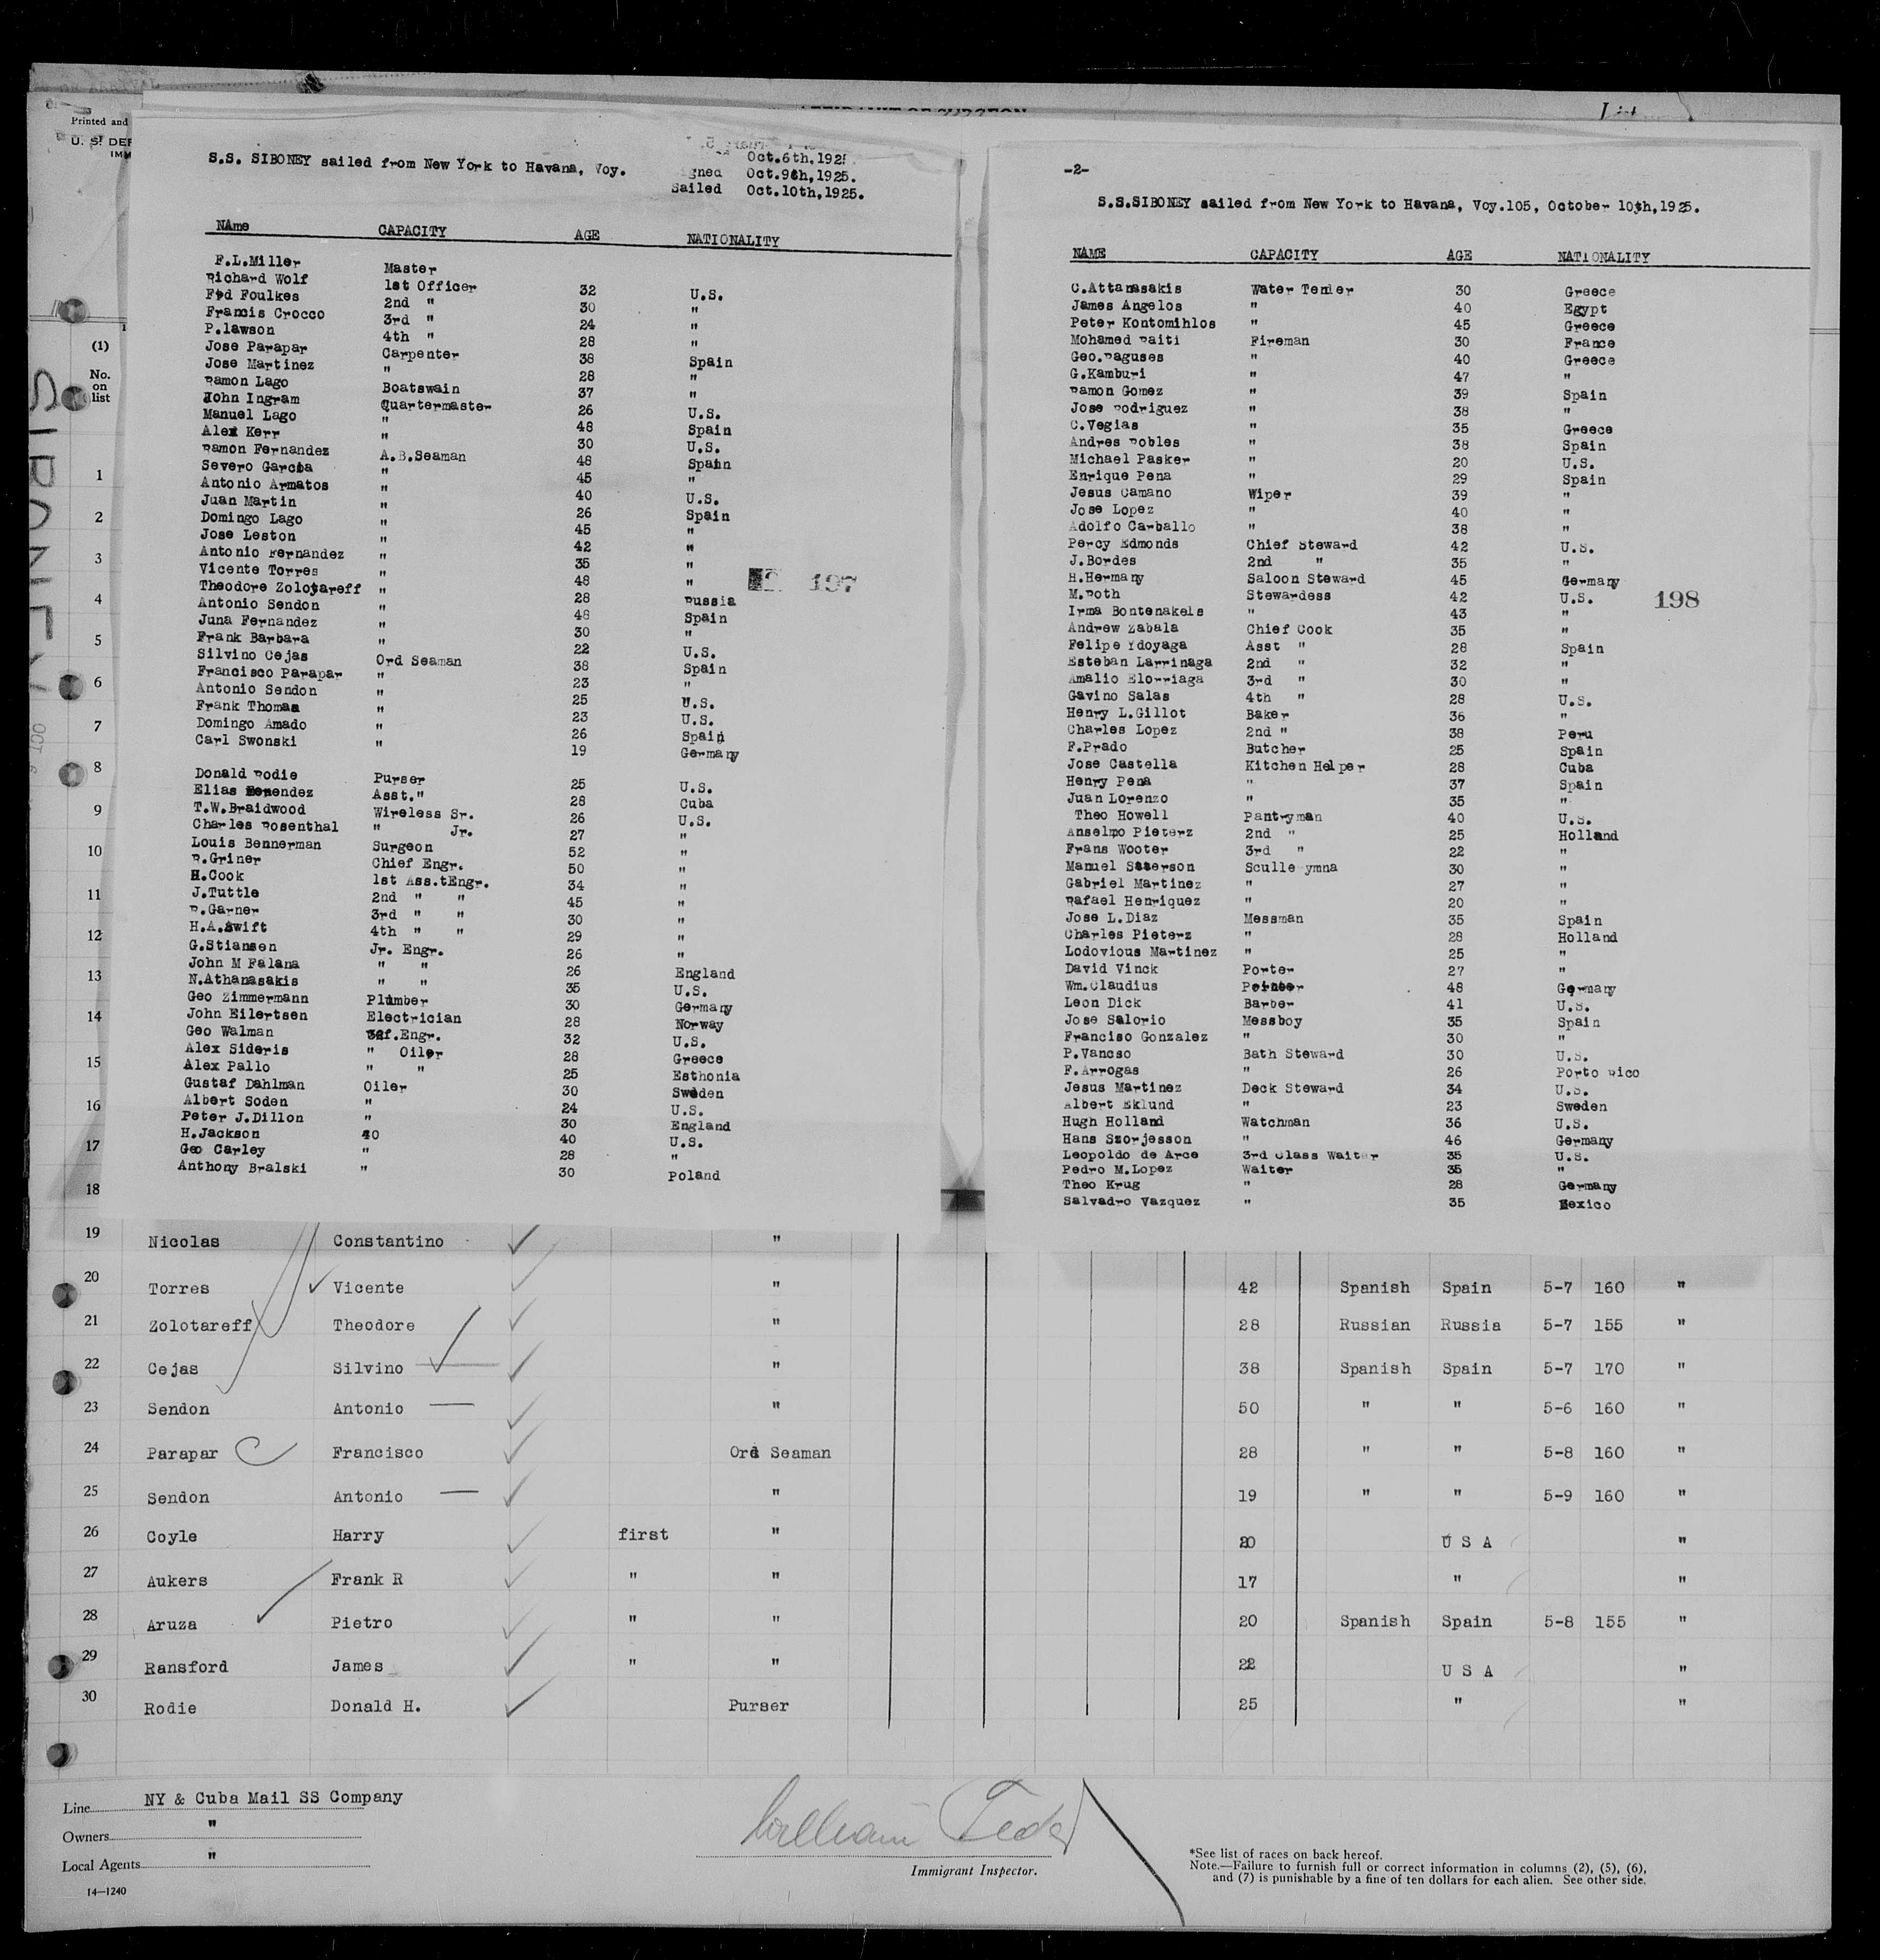 Printed and
U. S. DEP
IMM
S.S. SIBONEY sailed from New York to Havana, Voy.
Oct.6th,1925.
gned Oct.9th,1925.
Sailed Oct.10th,1925.
NAme CAPACITY AGE NATIONALITY
F.L.Miller Master
Richard Wolf 1st Officer 32 U.S.
Fed Foulkes 2nd " 30 "
Francis Crocco 3rd " 24 "
P.lawson 4th " 28 "
Jose Parapar Carpenter 38 Spain
Jose Martinez " 28 "
Ramon Lago Boatswain 37 "
John Ingram Quartermaster 26 U.S.
Manuel Lago " 48 Spain
Alex Kerr " 30 U.S.
Ramon Fernandez A.B.Seaman 48 Spain
Severo Garcia " 45 "
Antonio Armatos " 40 U.S.
Juan Martin " 26 Spain
Domingo Lago " 45 "
Jose Leston " 42 "
Antonio Fernandez " 35 "
Vicente Torres " 48 "
197
Theodore Zolotareff " 28 Russia
Antonio Sendon " 48 Spain
Juna Fernandez " 30 "
Frank Barbara " 22 U.S.
Silvino Cejas Ord Seaman 38 Spain
Francisco Parapar " 23 "
Antonio Sendon " 25 U.S.
Frank Thomas " 23 U.S.
Domingo Amado " 26 Spain
Carl Swonski " 19 Germany
Donald Rodie Purser 25 U.S.
Elias Menendez Asst." 28 Cuba
T.W.Braidwood Wireless Sr. 26 U.S.
Charles Rosenthal " Jr. 27 "
Louis Bennerman Surgeon 52 "
R.Griner Chief Engr. 50 "
H.Cook 1st Ass.tEngr. 34 "
J.Tuttle 2nd " " 45 "
R.Garner 3rd " " 30 "
H.A.Swift 4th " " 29 "
G.Stiansen Jr. Engr. 26 "
John M Falana " " 26 England
N.Athanasakis " " 35 U.S.
Geo Zimmermann Plumber 30 Germany
John Eilertsen Electrician 28 Norway
Geo Walman Ref.Engr. 32 U.S.
Alex Sideris " Oiler 28 Greece
Alex Pallo " " 25 Esthonia
Gustaf Dahlman Oiler 30 Sweden
Albert Soden " 24 U.S.
Peter J.Dillon " 30 England
H.Jackson 40 40 U.S.
Geo Carley " 28 "
Anthony Bralski " 30 Poland
-2-
S.S.SIBONEY sailed from New York to Havana, Voy.105, October 10th,1925.
NAME CAPACITY AGE NATIONALITY
C.Attanasakis Water Tender 30 Greece
James Angelos " 40 Egypt
Peter Kontomihlos " 45 Greece
Mohamed Raiti Fireman 30 France
Geo.Raguses " 40 Greece
G.Kamburi " 47 "
Ramon Gomez " 39 Spain
Jose Rodriguez " 38 "
C.Vegias " 35 Greece
Andres Robles " 38 Spain
Michael Pasker " 20 U.S.
Enrique Pena " 29 Spain
Jesus Camano Wiper 39 "
Jose Lopez " 40 "
Adolfo Carballo " 38 "
Percy Edmonds Chief Steward 42 U.S.
J.Bordes 2nd " 35 "
H.Hermany Saloon Steward 45 Germany
M.Roth Stewardess 42 U.S.
198
Irma Bontenakels " 43 "
Andrew Zabala Chief Cook 35 "
Felipe Ydoyaga Asst " 28 Spain
Esteban Larrinaga 2nd " 32 "
Amalio Elorriaga 3rd " 30 "
Gavino Salas 4th " 28 U.S.
Henry L.Gillot Baker 36 "
Charles Lopez 2nd " 38 Peru
F.Prado Butcher 25 Spain
Jose Castella Kitchen Helper 28 Cuba
Henry Pena " 37 Spain
Juan Lorenzo " 35 "
Theo Howell Pantryman 40 U.S.
Anselmo Pieterz 2nd " 25 Holland
Frans Wooter 3rd " 22 "
Manuel Saterson Sculle ymna 30 "
Gabriel Martinez " 27 "
Rafael Henriquez " 20 "
Jose L.Diaz Messman 35 Spain
Charles Pieterz " 28 Holland
Lodovious Martinez " 25 "
David Vinck Porter 27 "
Wm.Claudius Porter 48 Germany
Leon Dick Barber 41 U.S.
Jose Salorio Messboy 35 Spain
Franciso Gonzalez " 30 "
P.Vancso Bath Steward 30 U.S.
F.Arrogas " 26 Porto Rico
Jesus Martinez Deck Steward 34 U.S.
Albert Eklund " 23 Sweden
Hugh Holland Watchman 36 U.S.
Hans Szorjesson " 46 Germany
Leopoldo de Arce 3rd Class Waiter 35 U.S.
Pedro M.Lopez Waiter 35 "
Theo Krug " 28 Germany
Salvadro Vazquez " 35 Mexico
(1)
No.
on
list
SIBONEY
OCT
1
2
3
4
5
6
7
8
9
10
11
12
13
14
15
16
17
18
19 Nicolas Constantino "
20 Torres Vicente " 42 Spanish Spain 5-7 160 "
21 Zolotareff Theodore " 28 Russian Russia 5-7 155 "
22 Cejas Silvino " 38 Spanish Spain 5-7 170 "
23 Sendon Antonio " 50 " " 5-6 160 "
24 Parapar Francisco Ord Seaman 28 " " 5-8 160 "
25 Sendon Antonio " 19 " " 5-9 160 "
26 Coyle Harry first " 20 U S A "
27 Aukers Frank R " " 17 " "
28 Aruza Pietro " " 20 Spanish Spain 5-8 155 "
29 Ransford James " " 22 U S A "
30 Rodie Donald H. Purser 25 " "
Line NY & Cuba Mail SS Company
Owners "
Local Agents "
14—1240
William
Immigrant Inspector.
*See list of races on back hereof.
Note.—Failure to furnish full or correct information in columns (2), (5), (6),
and (7) is punishable by a fine of ten dollars for each alien. See other side.